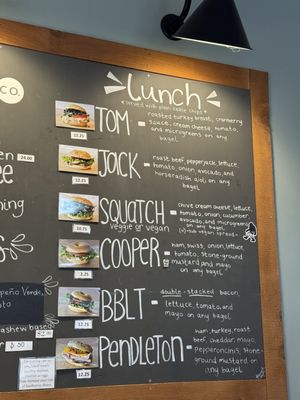 CO.
Lunch
*served with plain kettle chips*
TOM
roasted turkey breast, cranberry
sauce, cream cheese, tomato,
and microgreens on any
bagel
12.25
JACK
roast beef, pepperjack, lettuce,
tomato, onion, avocado, and
horseradish aioli on any
bagel
12.25
SQUATCH
veggie or vegan
chive cream cheese, lettuce,
tomato, onion, cucumber,
avocado, and microgreens
on any bagel
10.75
COOPER
ham, swiss, onion, lettuce,
tomato, stone-ground
mustard and mayo
on any bagel.
12.25
BBLT
double-stacked bacon,
lettuce, tomato, and
mayo on any bagel.
12.25
PENDLETON
ham, turkey, roast
beef, cheddar, mayo,
pepperoncinis, stone-
ground mustard on
any bagel
12.25
24.00